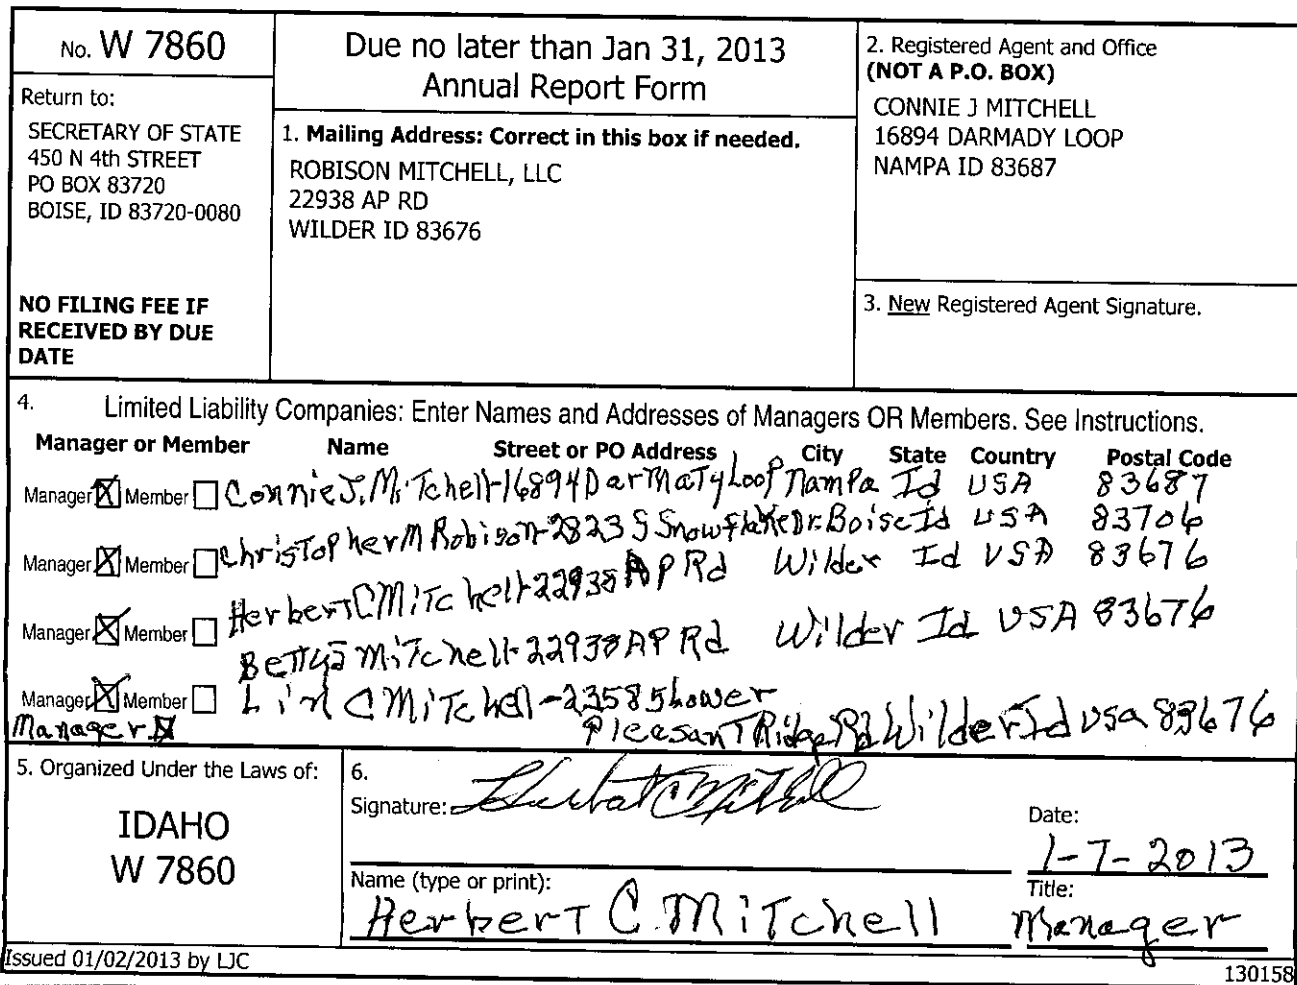 No. W 7860
Return to:
SECRETARY OF STATE
450 N 4th STREET
PO BOX 83720
BOISE, ID 83720-0080
NO FILING FEE IF
RECEIVED BY DUE
DATE
Due no later than Jan 31, 2013
Annual Report Form
1. Mailing Address: Correct in this box if needed.
ROBISON MITCHELL, LLC
22938 AP RD
WILDER ID 83676
2. Registered Agent and Office
(NOT A P.O. BOX)
CONNIE J MITCHELL
16894 DARMADY LOOP
NAMPA ID 83687
3. New Registered Agent Signature.
4. Limited Liability Companies: Enter Names and Addresses of Managers OR Members. See Instructions.
Manager or Member Name Street or PO Address City State Country Postal Code
Manager Member Connie J. Mitchell-16894 DarMaTy Loop Nampa Id USA 83687
ChrisTopher M Robison-2823 S Snowflake Dr. Boise Id USA 83706
Manager Member Herbert C Mitchell-22938 AP Rd Wilder Id USA 83676
Manager Member Betty J Mitchell-22938 AP Rd Wilder Id USA 83676
Manager Member C Mitchell-23585 Lower
Manager Pleasant Ridge Rd Wilder Id usa 83676
5. Organized Under the Laws of:
IDAHO
W 7860
6.
Signature: Herbert C Mitchell
Date:
1-7-2013
Name (type or print):
Herbert C. Mitchell
Title:
Manager
Issued 01/02/2013 by LJC
130158